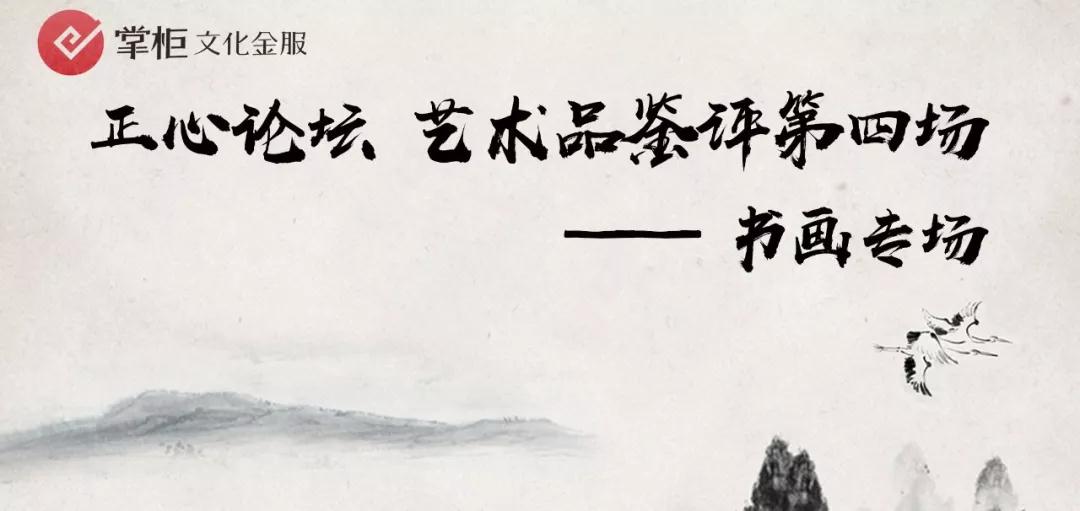 掌柜文化金服
正心论坛 艺术品鉴评第四场
—— 书画专场